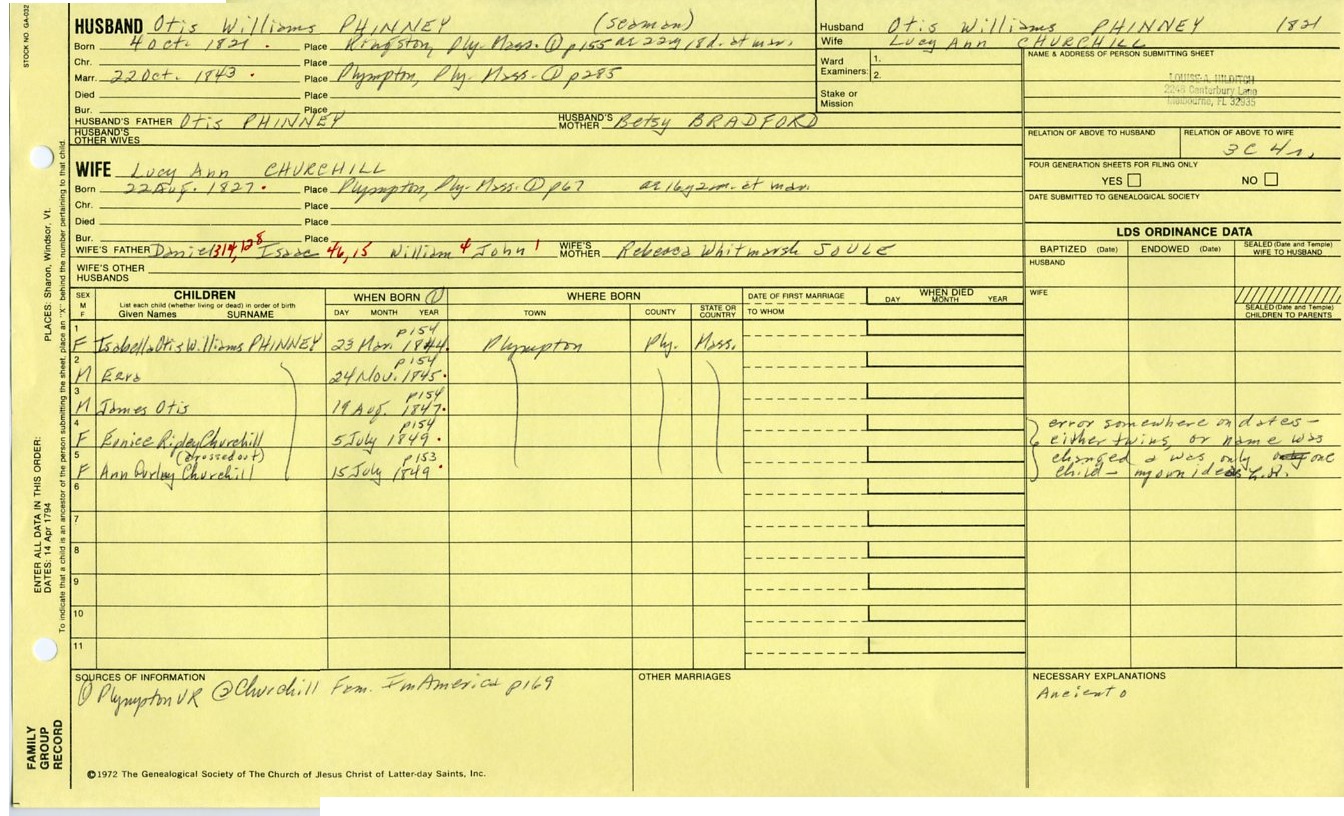 STOCK NO. GA-032
HUSBAND Otis Williams PHINNEY (seaman)
Born 4 Oct. 1821 Place Kingston, Ply. Mass. ① p155 ae 22y 18d. at mar.
Chr. Place
Marr. 22 Oct. 1843 Place Plympton, Ply. Mass. ① p285
Died Place
Bur. Place
HUSBAND'S FATHER Otis PHINNEY HUSBAND'S MOTHER Betsy BRADFORD
HUSBAND'S OTHER WIVES
WIFE Lucy Ann CHURCHILL
Born 22 Aug. 1827 Place Plympton, Ply. Mass. ① p67 ae 16y 2m. at mar.
Chr. Place
Died Place
Bur. Place
WIFE'S FATHER Daniel 314, 128 Isaac 46, 15 William 4 John 1 WIFE'S MOTHER Rebecca Whitmarsh SOULE
WIFE'S OTHER HUSBANDS
Husband Otis Williams PHINNEY 1821
Wife Lucy Ann CHURCHILL
Ward 1.
Examiners: 2.
Stake or
Mission
NAME & ADDRESS OF PERSON SUBMITTING SHEET
LOUISE A. HILDITCH
2246 Canterbury Lane
Melbourne, FL 32935
RELATION OF ABOVE TO HUSBAND RELATION OF ABOVE TO WIFE
3C 4r.
FOUR GENERATION SHEETS FOR FILING ONLY
YES NO
DATE SUBMITTED TO GENEALOGICAL SOCIETY
LDS ORDINANCE DATA
BAPTIZED (Date) ENDOWED (Date) SEALED (Date and Temple) WIFE TO HUSBAND
HUSBAND
WIFE
SEALED (Date and Temple) CHILDREN TO PARENTS
SEX M F CHILDREN WHEN BORN ① WHERE BORN DATE OF FIRST MARRIAGE WHEN DIED
List each child (whether living or dead) in order of birth
Given Names SURNAME DAY MONTH YEAR TOWN COUNTY STATE OR COUNTRY TO WHOM DAY MONTH YEAR
1 p154
F Isabella Otis Williams PHINNEY 23 Mar. 1844. Plympton Ply. Mass.
2 p154
M Ezra 24 Nov. 1845.
3 p154
M James Otis 19 Aug. 1847.
4 p154
F Eunice Ripley Churchill 5 July 1849.
(crossed out)
5 p153
F Ann Churchill 15 July 1849.
6
7
8
9
10
11
error somewhere on dates—
either twins, or name was
changed & was only one
child — my own ideas
SOURCES OF INFORMATION
① Plympton VR ② Churchill Fam. In America p169
OTHER MARRIAGES
NECESSARY EXPLANATIONS
Ancient
©1972 The Genealogical Society of The Church of Jesus Christ of Latter-day Saints, Inc.
FAMILY
GROUP
RECORD
ENTER ALL DATA IN THIS ORDER:
DATES: 14 Apr 1794
PLACES: Sharon, Windsor, Vt.
To indicate that a child is an ancestor of the person submitting the sheet, place an "X" behind the number pertaining to that child.